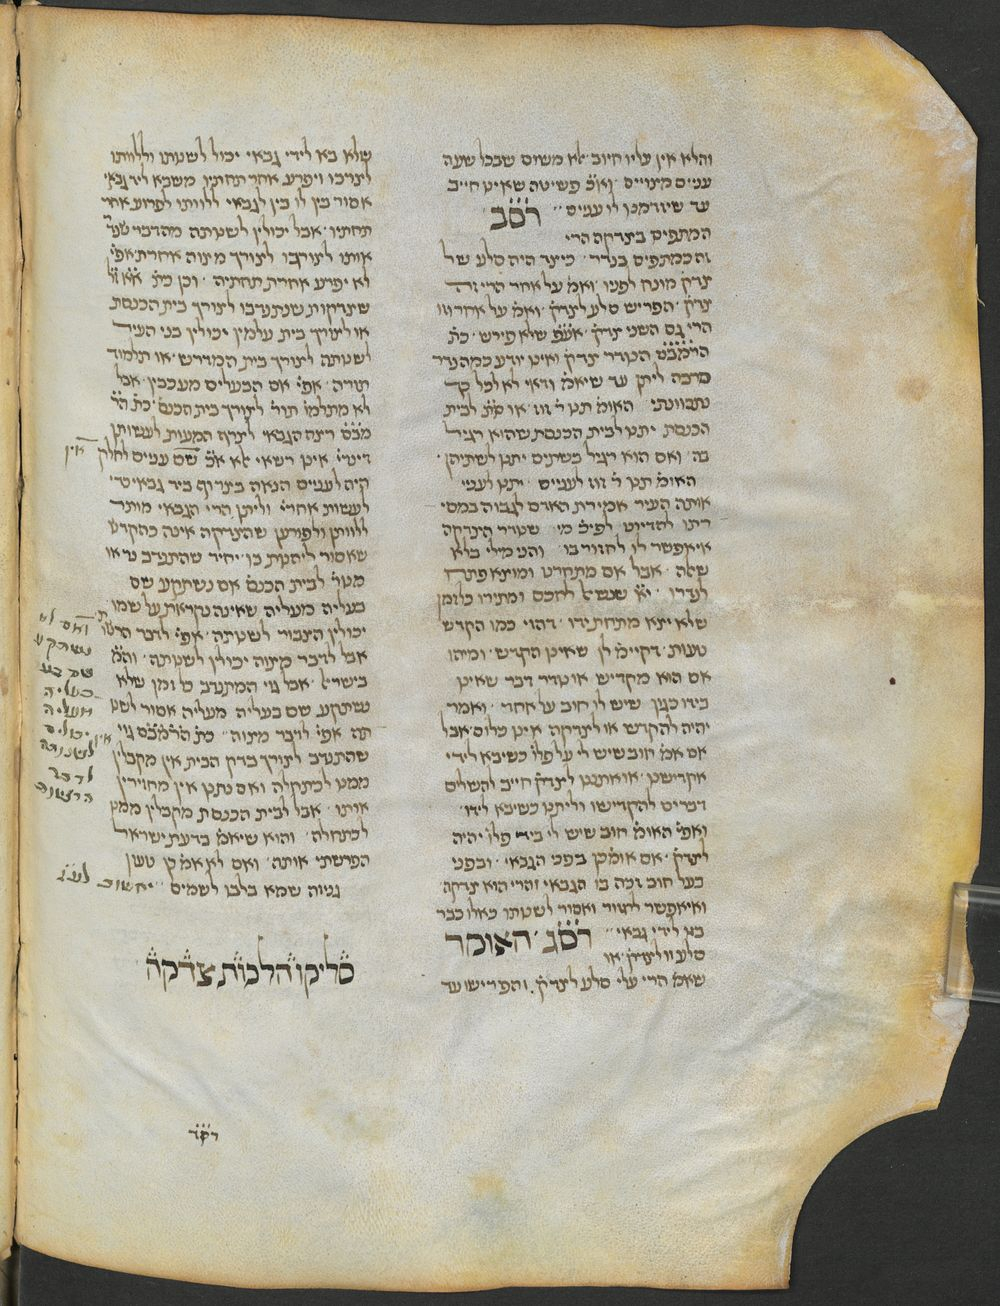 והלא אין עליו חיוב אלא משום שבכל שעה
עניים מצויים ואם פשיטה שאינו חייב
עד שיזדמנו לו עניים רסב
המתפיס בצדקה הרי
זה כמתפיס בנדר כיצד היה סלע של
צדק מונח לפניו ואמ על אחר הרי זה
צדק הפריש סלע לצדק ואמ על אחר וזו
הרי גם השני צדק אעפ שלא פירש כת
הרמבם הנודר צדק ואינו יודע כמה נדר
מרבה ליתן עד שיאמ ודאי לא לכל כך
נתכוונתי האומ תנו ר זוז או סת לבית
הכנסת יתנו לבית הכנסת שהוא רגיל
בה ואם הוא רגיל בשתים יתנו לשתיהן
האומ תנו ר זוז לעניים יתנו לעניי
אותה העיר אמירת האדם לגבוה כמסי
רתו להדיוט לפיכ מי שנדר הצדקה
אי אפשר לו לחזור בו והני מילי בלא
שאלה אבל אם מתחרט ומוצא פתח
לנדרו יא שנשאל לחכם ומתירו כל זמן
שלא יצא מתחת ידו דהוי כמו הקדש
טעות דקיימ לן שאינו הקדש ומיהו
אם הוא מקדיש או נודר דבר שאינו
בידו כגון שיש לו חוב על אחד ואמר
יהיה להקדש או לצדקה אינו כלום אבל
אם אמ חוב שיש לי על פלו כשיבא לידי
אקדישנו או אתננו לצדק חייב להשלים
דבריו להקדישו וליתנו כשיבא לידו
ואפי האומ חוב שיש לי ביד פלו יהיה
לצדק אם אומ כן בפני הגבאי ובפני
בעל חוב זכה בו הגבאי והרי הוא צדקה
ואי אפשר לחזור ואסור לשנותו כאלו כבר
בא לידי גבאי רסג האומר
סלע זו לצדק או
שאמ הרי עלי סלע לצדק והפרישו עד
שלא בא לידי גבאי יכול לשנותו וללוותו
לצרכו ויפרע אחר תחתיו משבא ליד גבאי
אסור בין לו בין לגבאי ללוותו לפרוע אחר
תחתיו אבל יכולין לשנותה מהדבר שנדר
אותו לצורכו לצורך מצוה אחרת אפי
לא יפרע אחרת תחתיה וכן כת אא זל
שצדקות שנתנדבו לצורך בית הכנסת
או לצורך בית עלמין יכולין בני העיר
לשנותה לצורך בית המדרש או תלמוד
תורה אפי אם הבעלים מעכבין אבל
לא מתלמו תור לצורך בית הכנס כת הר
מבם רצה הגבאי לצרף המעות לעשותן
דינרי אינו רשאי אלא אם שם עניים לחלק אין
היה לעניים הנאה בצרוף ביד גבאי כדי
לעשות אחרי וליתן הרי הגבאי מותר
ללוותן ולפורען שהצדקה אינה כהקדש
שאסור ליהנות בו יחיד שהתנדב נר או
מנור לבית הכנס אם נשתקע שם
בעליה מעליה שאינה נקראת על שמו
יכולין הצבור לשנותה אפי לדבר הרשות
אבל לדבר מצוה יכולין לשנותה והמ
בישר אבל גוי המתנדב כל זמן שלא
נשתקע שם בעליה מעליה אסור לשנו
תה אפי לדבר מצוה כת הרמבם גוי
שהתנדב לצורך בדק הבית אין מקבלין
ממנו לכתחלה ואם נתנו אין מחזירין
אותו אבל לבית הכנסת מקבלין ממנו
לכתחלה והוא שיאמ בדעת ישראל
הפרשתי אותה ואם לא אמ כן טעון
גניזה שמא בלבו לשמים יחשוב לעג
סליקו הלכות צדקה
ואם לא
נשתקע
שם בע
בעליה
מעליה
אין יכולים
לשנותה
לדבר
הרשות
רסד